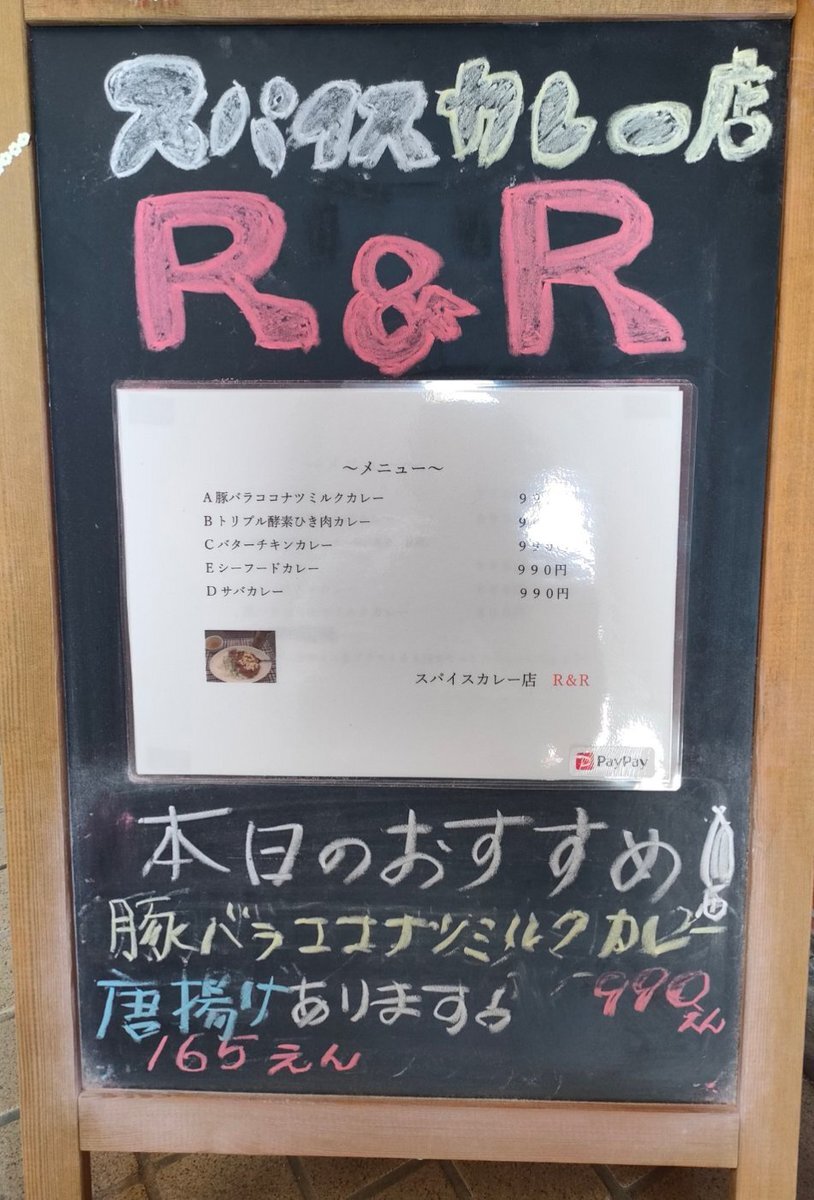 スパイスカレー店
R&R
～メニュー～
A豚バラココナツミルクカレー
Bトリプル酵素ひき肉カレー
Cバターチキンカレー
Eシーフードカレー 990円
Dサバカレー 990円
スパイスカレー店 R&R
PayPay
本日のおすすめ!
豚バラココナツミルクカレー
唐揚けあります。 990えん
165えん